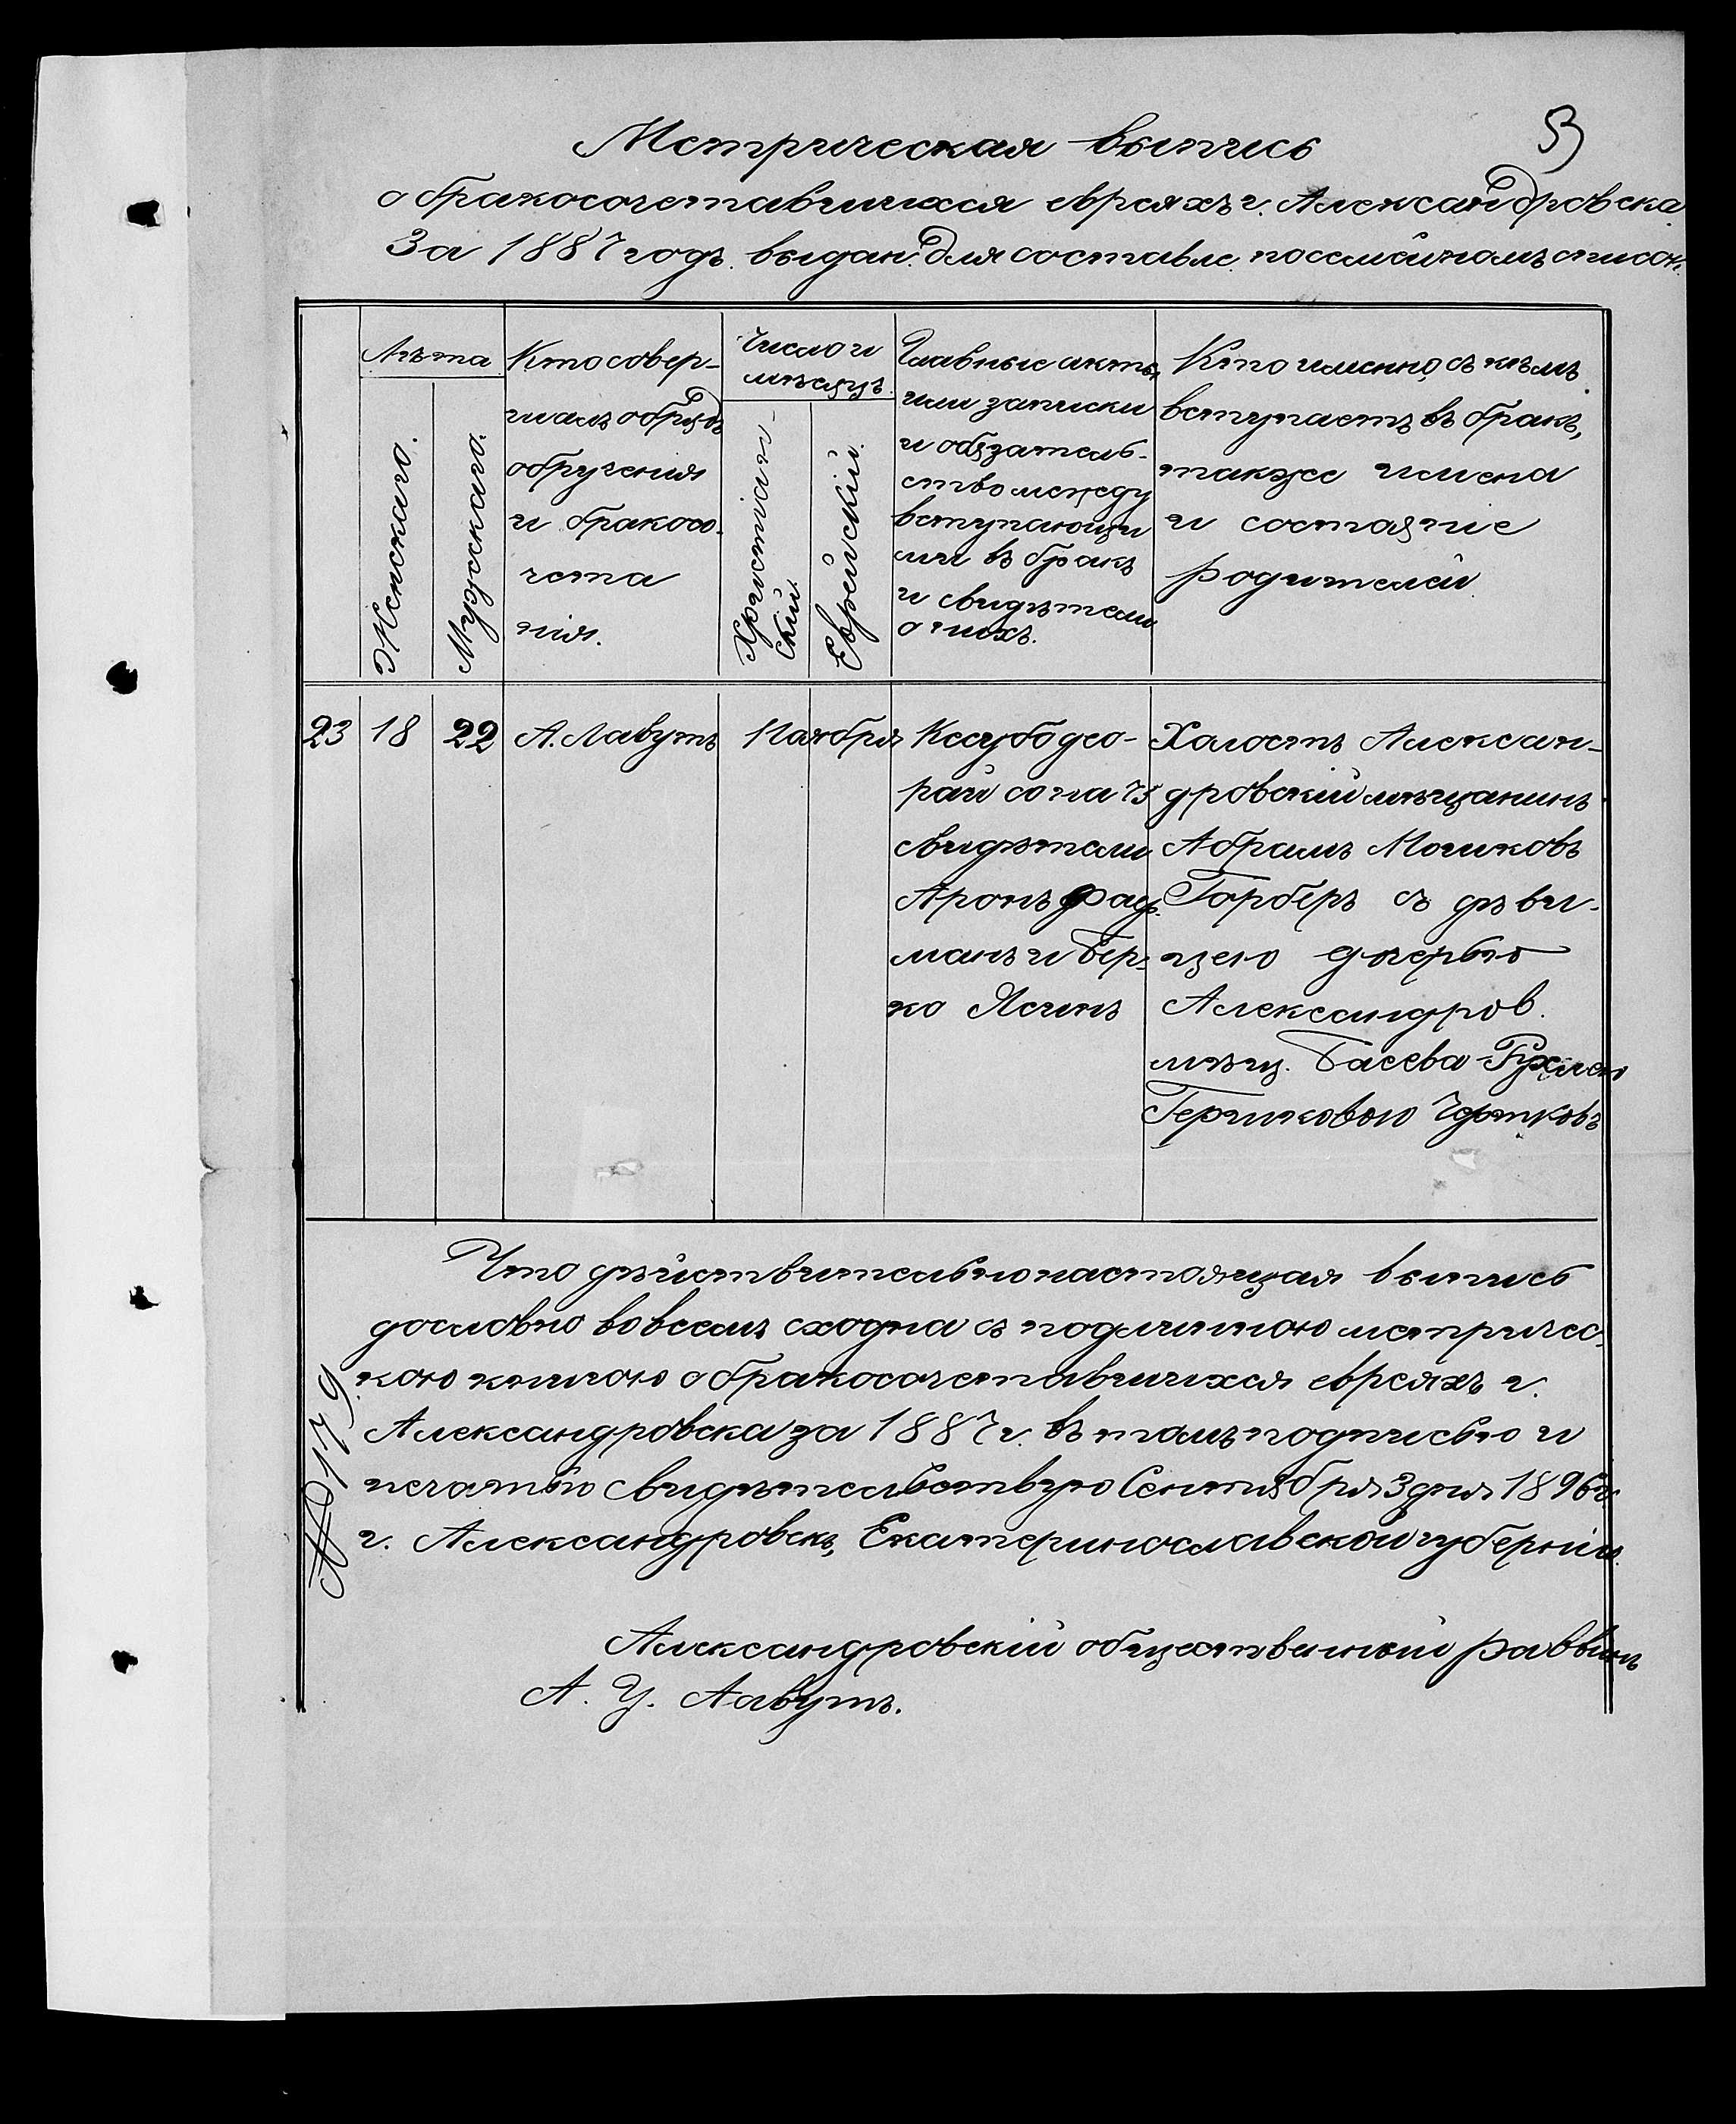 53
Метрическая выпись
о бракосочетавшихся евреяхъ г. Александровска
За 1887 годъ. выдан. для составле. посемейномъ списк.
Лѣта
Женскаго.
Мужскаго.
Кто совер-
шалъ обрядъ
обрученія
и бракосо-
чета
нія.
Число и
мѣсяцъ.
Христіан-
скій.
Еврейскій.
Главные акты
или записки
и обязатель-
ство между
вступающи
ми въ бракъ
и свидѣтели
о нихъ.
Кто именно, съ кѣмъ
вступаетъ въ бракъ,
также имена
и состояніе
родителей.
23 18 22 А. Лавутъ Ноября
Ксубо део-
рай сона 75
свидѣтели
Аронъ Фад.
манъ и Бер-
ко Ясинъ
Холостъ Алексан-
дровскій мѣщанинъ
Абрамъ Мошковъ
Горберъ съ дѣви-
цею дочерью
Александров.
мѣщ. Басева-Рухлею
Гершковою Чертковъ
Что дѣйствительно настоящая выпись
дословно во всемъ сходна съ подлинною метричес-
кою книгою о бракосочетавшихся евреяхъ г.
Александровска за 1887 г. въ томъ подписью и
печатью свидѣтельствую Сентября 3 дня 1896 г.
г. Александровскъ, Екатеринославской губерніи.
№ 179.
Александровскій общественный раввинъ
А. У. Лавутъ.